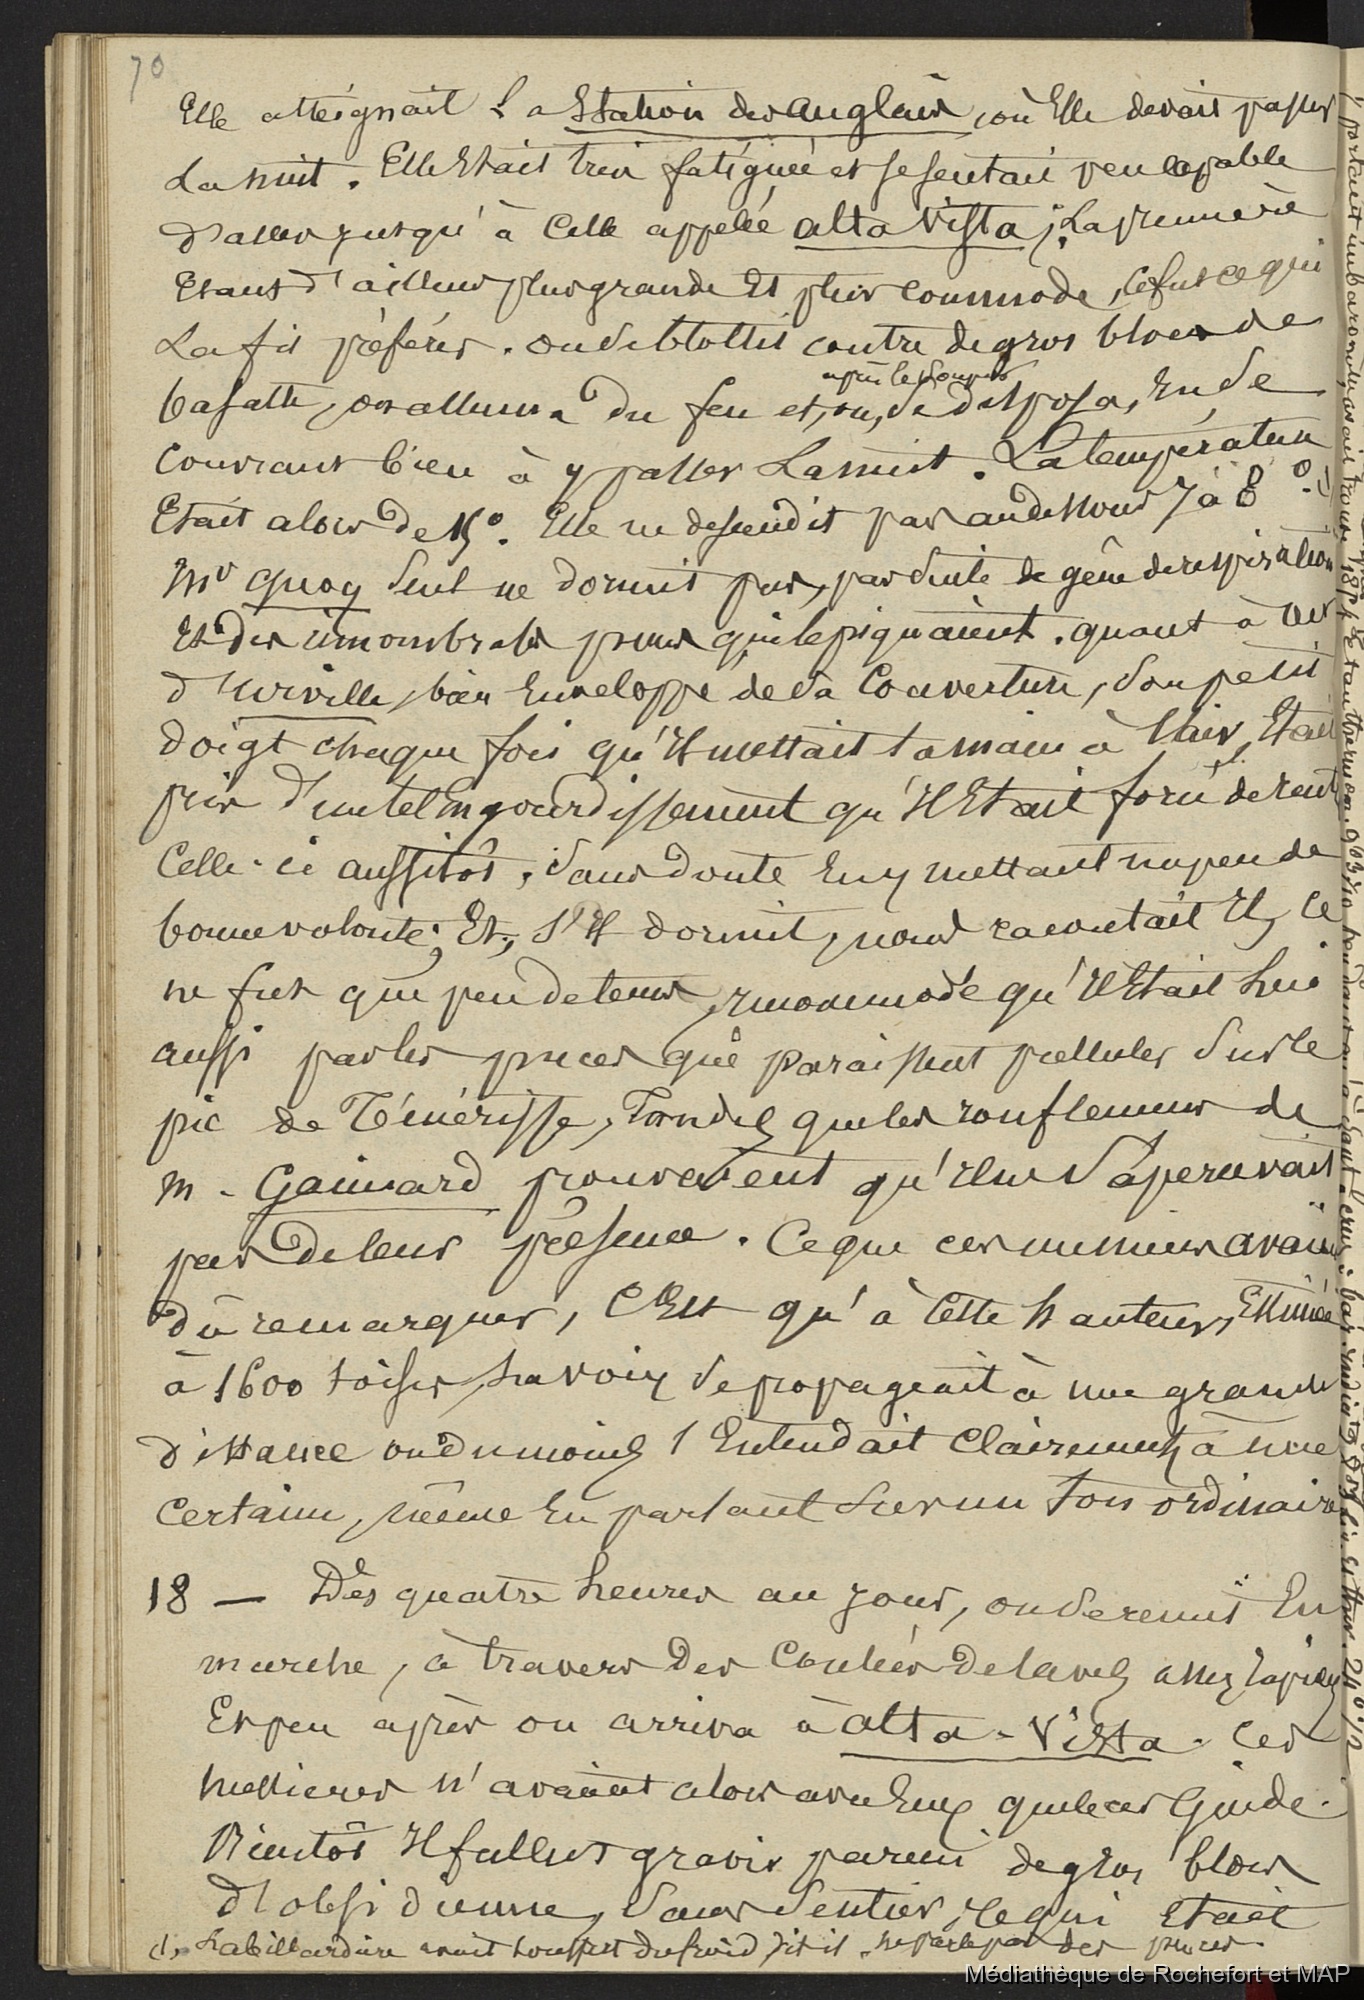 70
Elle atteignait La Station des anglais, où Elle devait passer
La nuit. Elle Etait très fatiguée et se sentait peu capable
d'aller jusqu'à Celle appelée alta Vista; La première
Etant d'ailleurs plus grande Et plus commode, ce fut ce qui
La fit préférer. on se blottit contre de gros blocs de
basalte, on alluma du feu et, on, se disposa, En se
après le souper
couvrant bien à y passer La nuit. La température
Etait alors de 15°. Elle ne descendit pas au dessous 7 à 8°.
Mr Quoy seul ne dormit pas, par suite de gêne de respiration
Et des innombrables puces qui le piquaient. quant à
d'Urville, bien Enveloppé de sa Couverture, son petit
doigt chaque fois qu'Il mettait la main à l'air, Etait
pris d'un tel Engourdissement qu'Il Etait forcé de
Celle-ci aussitôt, sans doute En y mettant un peu de
bonne volonté; Et, s'Il dormit, nous racontait Il, ce
ne fut que peu de tems, incommodé qu'Il Etait lui
aussi par les puces qui paraissent pulluler sur le
pic de Ténériffe, Tandis que les ronflemens de
M. Gaimard prouvaient qu'Il ne s'apercevait
pas de leur présence. Ce que ces messieurs avaient
dû remarquer, c'Est qu'à Cette hauteur, Estimée
à 1600 toises, La voix se propageait à une grande
distance ou du moins s'Entendait Clairement à une
Certaine, même En parlant sur un ton ordinaire
18 — Dès quatre heures au jour, on se remit En
marche, à travers des Coulées de laves assez rapides
Et peu après on arriva à alta-Vista. Ces
messieurs n'avaient alors avec Eux que leur Guide.
Bientôt Il fallut gravir parmi de gros blocs
d'obsidienne, sans sentier, ce qui Etait
(1, Labillardière avait souffert du froid, dit-il, ne parle pas des puces.
Médiathèque de Rochefort et MAP